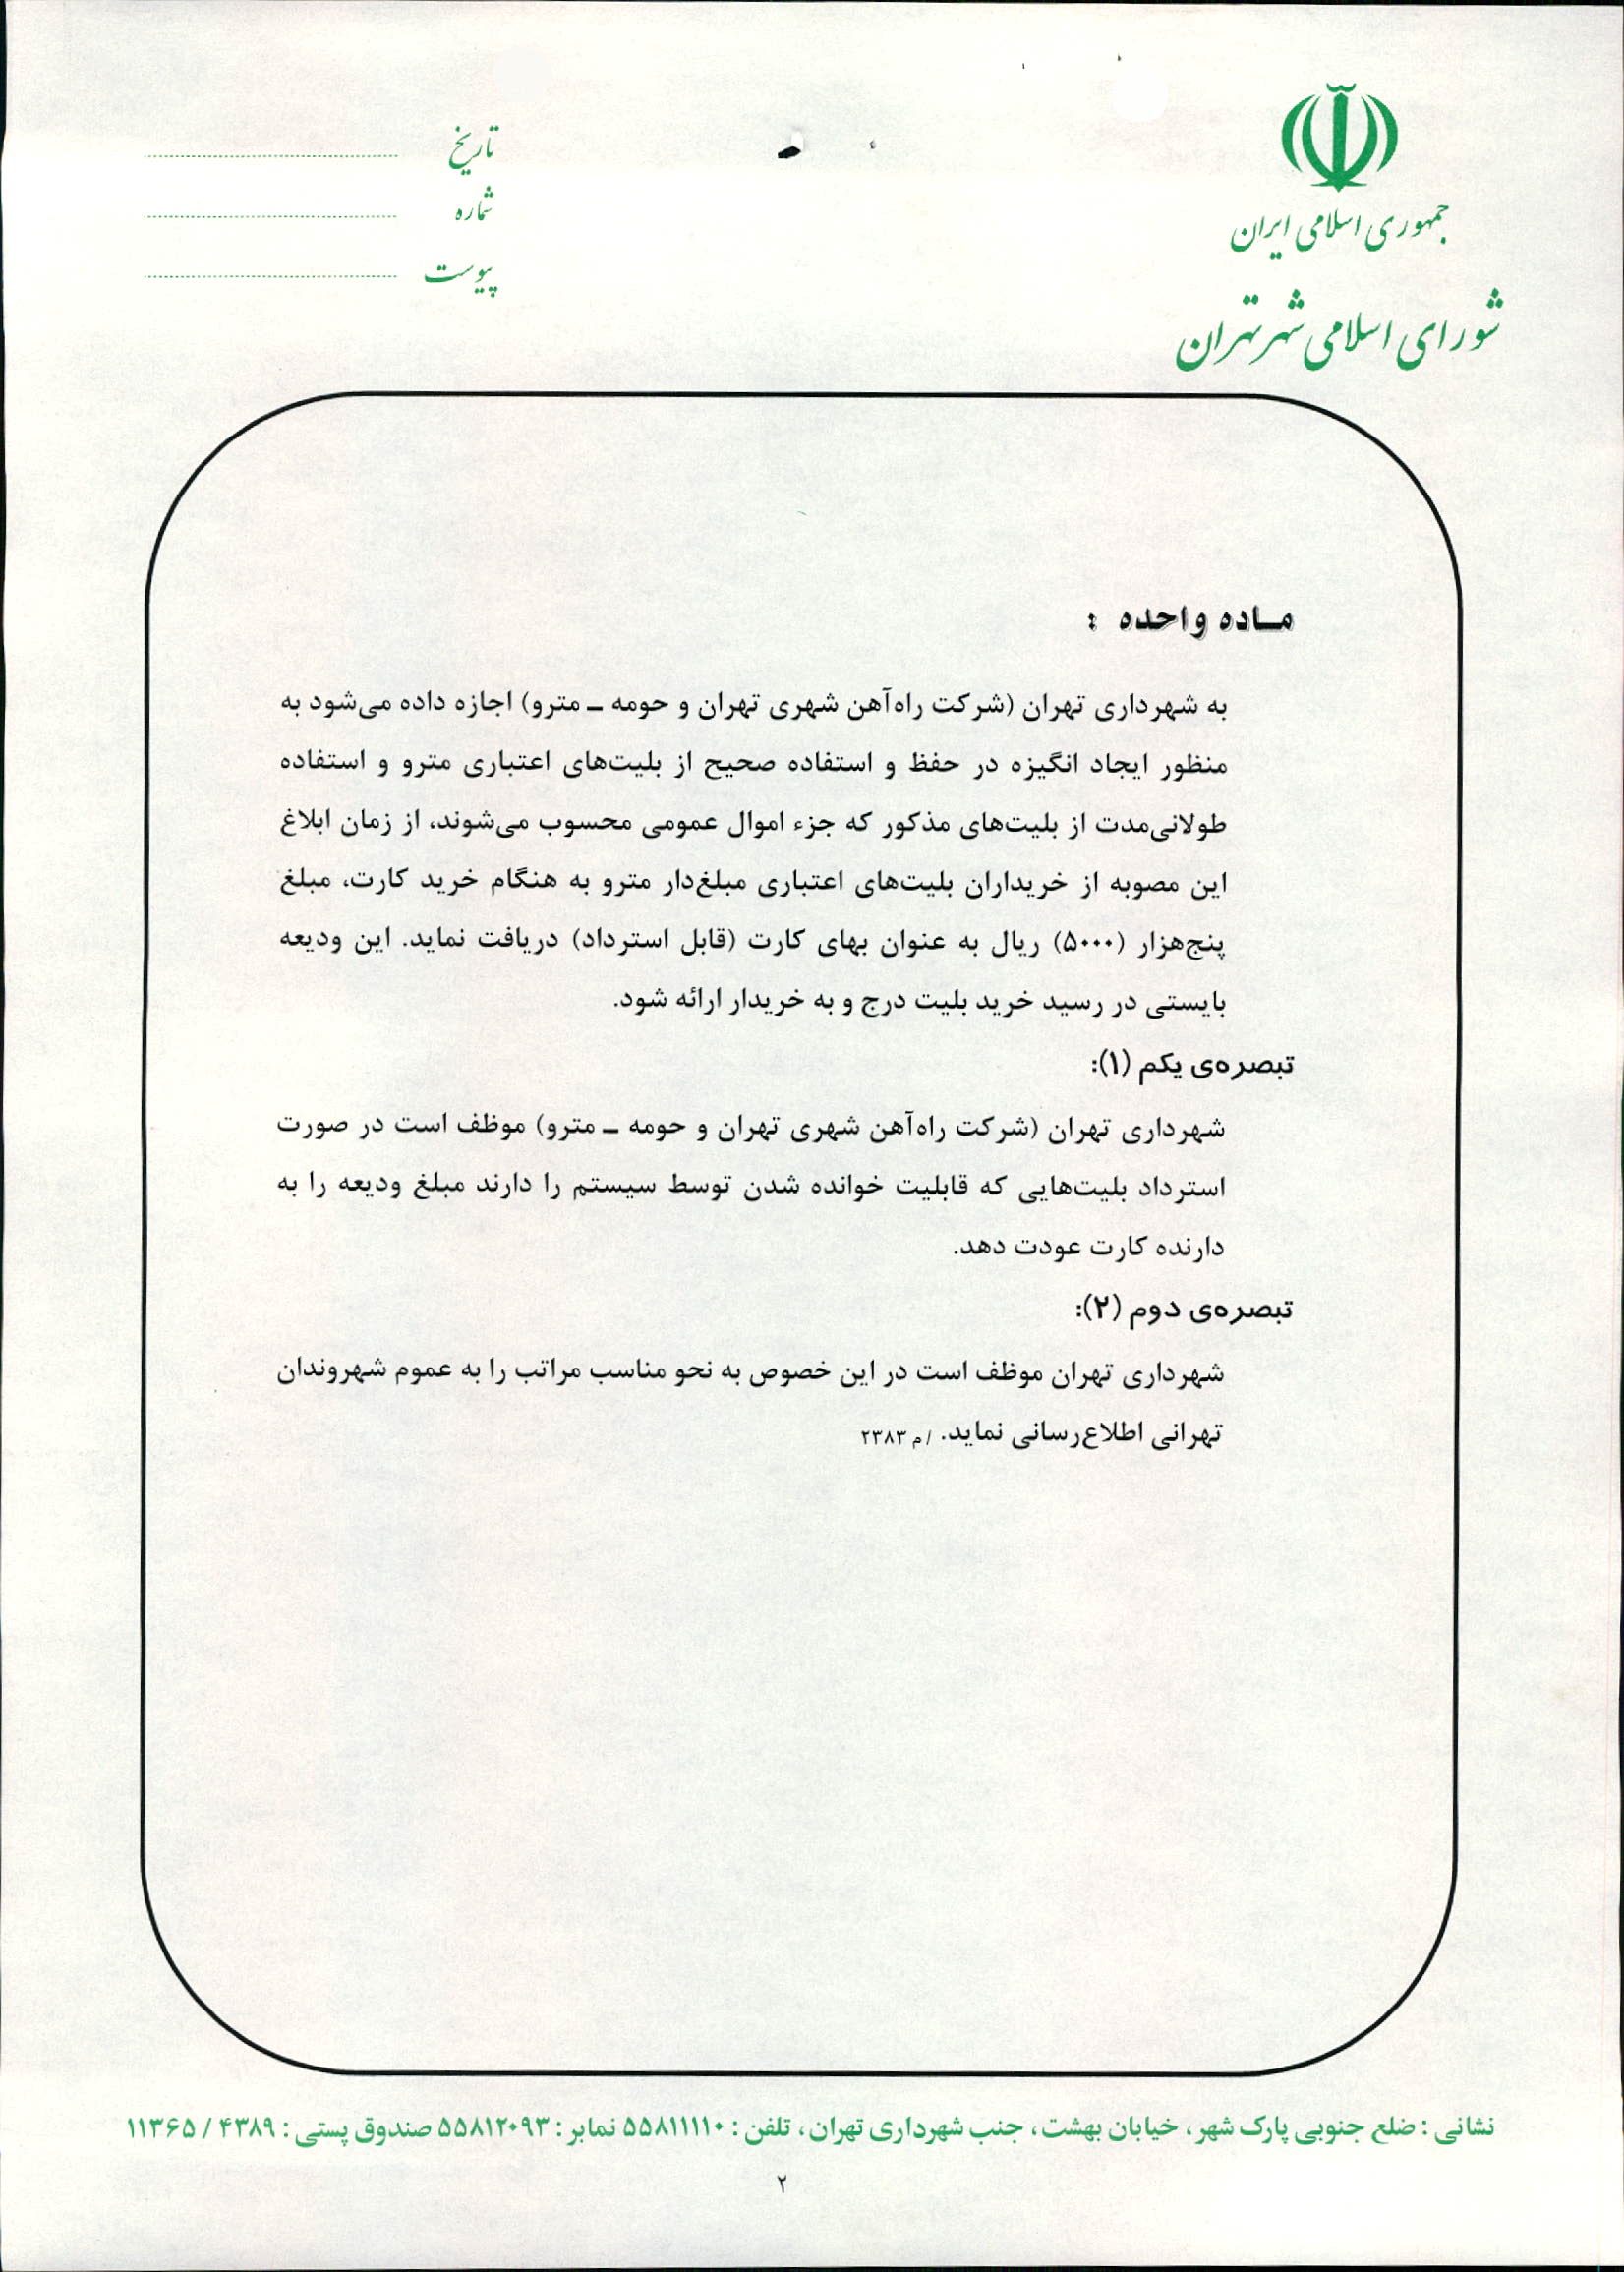 جمهوری اسلامی ایران
شورای اسلامی شهر تهران
تاریخ
شماره
پیوست
مـاده واحده :
به شهرداری تهران (شرکت راه‌آهن شهری تهران و حومه ـ مترو) اجازه داده می‌شود به
منظور ایجاد انگیزه در حفظ و استفاده صحیح از بلیت‌های اعتباری مترو و استفاده
طولانی‌مدت از بلیت‌های مذکور که جزء اموال عمومی محسوب می‌شوند، از زمان ابلاغ
این مصوبه از خریداران بلیت‌های اعتباری مبلغ‌دار مترو به هنگام خرید کارت، مبلغ
پنج‌هزار (۵۰۰۰) ریال به عنوان بهای کارت (قابل استرداد) دریافت نماید. این ودیعه
بایستی در رسید خرید بلیت درج و به خریدار ارائه شود.
تبصره‌ی یکم (۱):
شهرداری تهران (شرکت راه‌آهن شهری تهران و حومه ـ مترو) موظف است در صورت
استرداد بلیت‌هایی که قابلیت خوانده شدن توسط سیستم را دارند مبلغ ودیعه را به
دارنده کارت عودت دهد.
تبصره‌ی دوم (۲):
شهرداری تهران موظف است در این خصوص به نحو مناسب مراتب را به عموم شهروندان
تهرانی اطلاع‌رسانی نماید. /م ۲۳۸۳
نشانی : ضلع جنوبی پارک شهر، خیابان بهشت، جنب شهرداری تهران، تلفن : ۵۵۸۱۱۱۱۰ نمابر : ۵۵۸۱۲۰۹۳ صندوق پستی : ۴۳۸۹ / ۱۱۳۶۵
۲